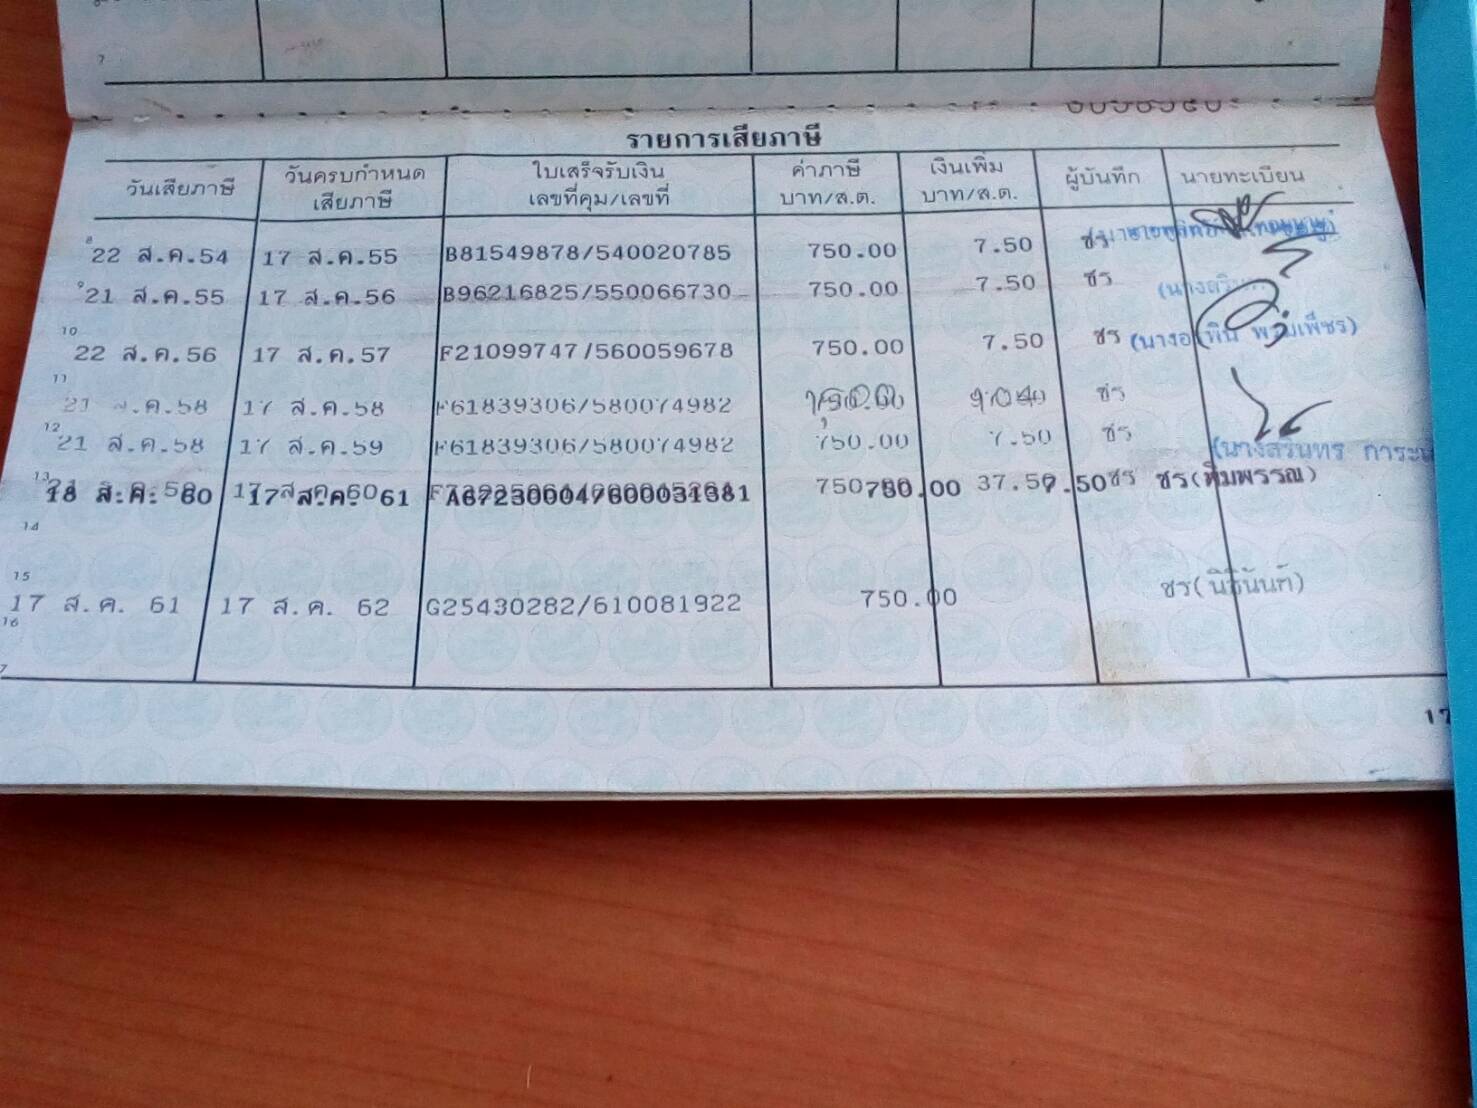 7
รายการเสียภาษี
วันเสียภาษี วันครบกำหนดเสียภาษี ใบเสร็จรับเงิน เลขที่คุม/เลขที่ ค่าภาษี บาท/ส.ต. เงินเพิ่ม บาท/ส.ต. ผู้บันทึก นายทะเบียน
8 22 ส.ค.54 17 ส.ค.55 B81549878/540020785 750.00 7.50 ชร
9 21 ส.ค.55 17 ส.ค.56 B96216825/550066730 750.00 7.50 ชร
10 22 ส.ค.56 17 ส.ค.57 F21099747/560059678 750.00 7.50 ชร
11 21 ส.ค.58 17 ส.ค.58 F61839306/580074982 ชร
12 21 ส.ค.58 17 ส.ค.59 F61839306/580074982 750.00 7.50 ชร
(นางสรินทร
13 18 ส.ค. 60 17 ส.ค. 61 750.00 37.50 7.50 ชร ชร(ทิมพรรณ)
14
15 17 ส.ค. 61 17 ส.ค. 62 G25430282/610081922 750.00 ชร(นิธินันท์)
16
17